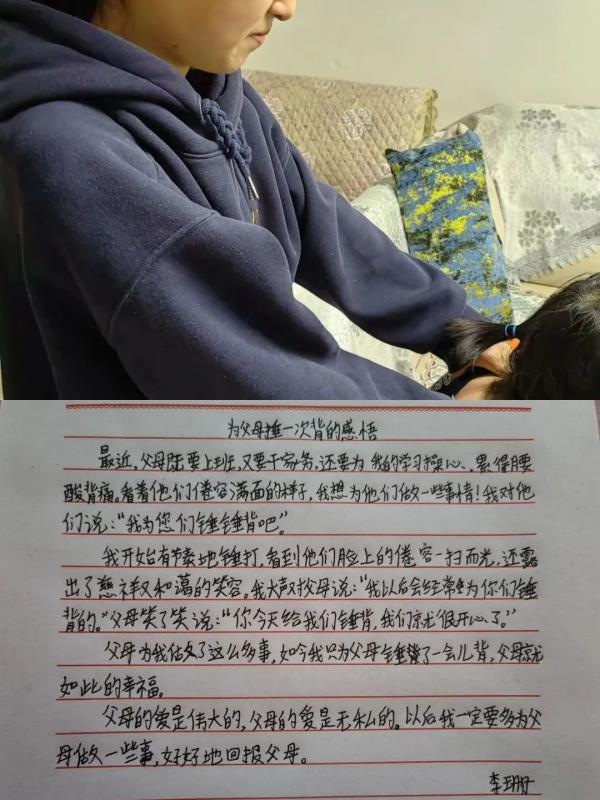 为父母捶一次背的感悟
最近，父母既要上班，又要干家务，还要为我的学习操心、累得腰
酸背痛。看着他们倦容满面的样子，我想为他们做一些事情！我对他
们说：“我为您们锤锤背吧。”
我开始有节奏地锤打，看到他们脸上的倦容一扫而光，还露
出了慈祥又和蔼的笑容。我大声对父母说：“我以后会经常为你们锤
背的。”父母笑了笑说：“你今天给我们锤背，我们就很开心了。”
父母为我做了这么多事，如今我只为父母锤了一会儿背，父母就
如此的幸福。
父母的爱是伟大的，父母的爱是无私的。以后我一定要多为父
母做一些事，好好地回报父母。
李珊